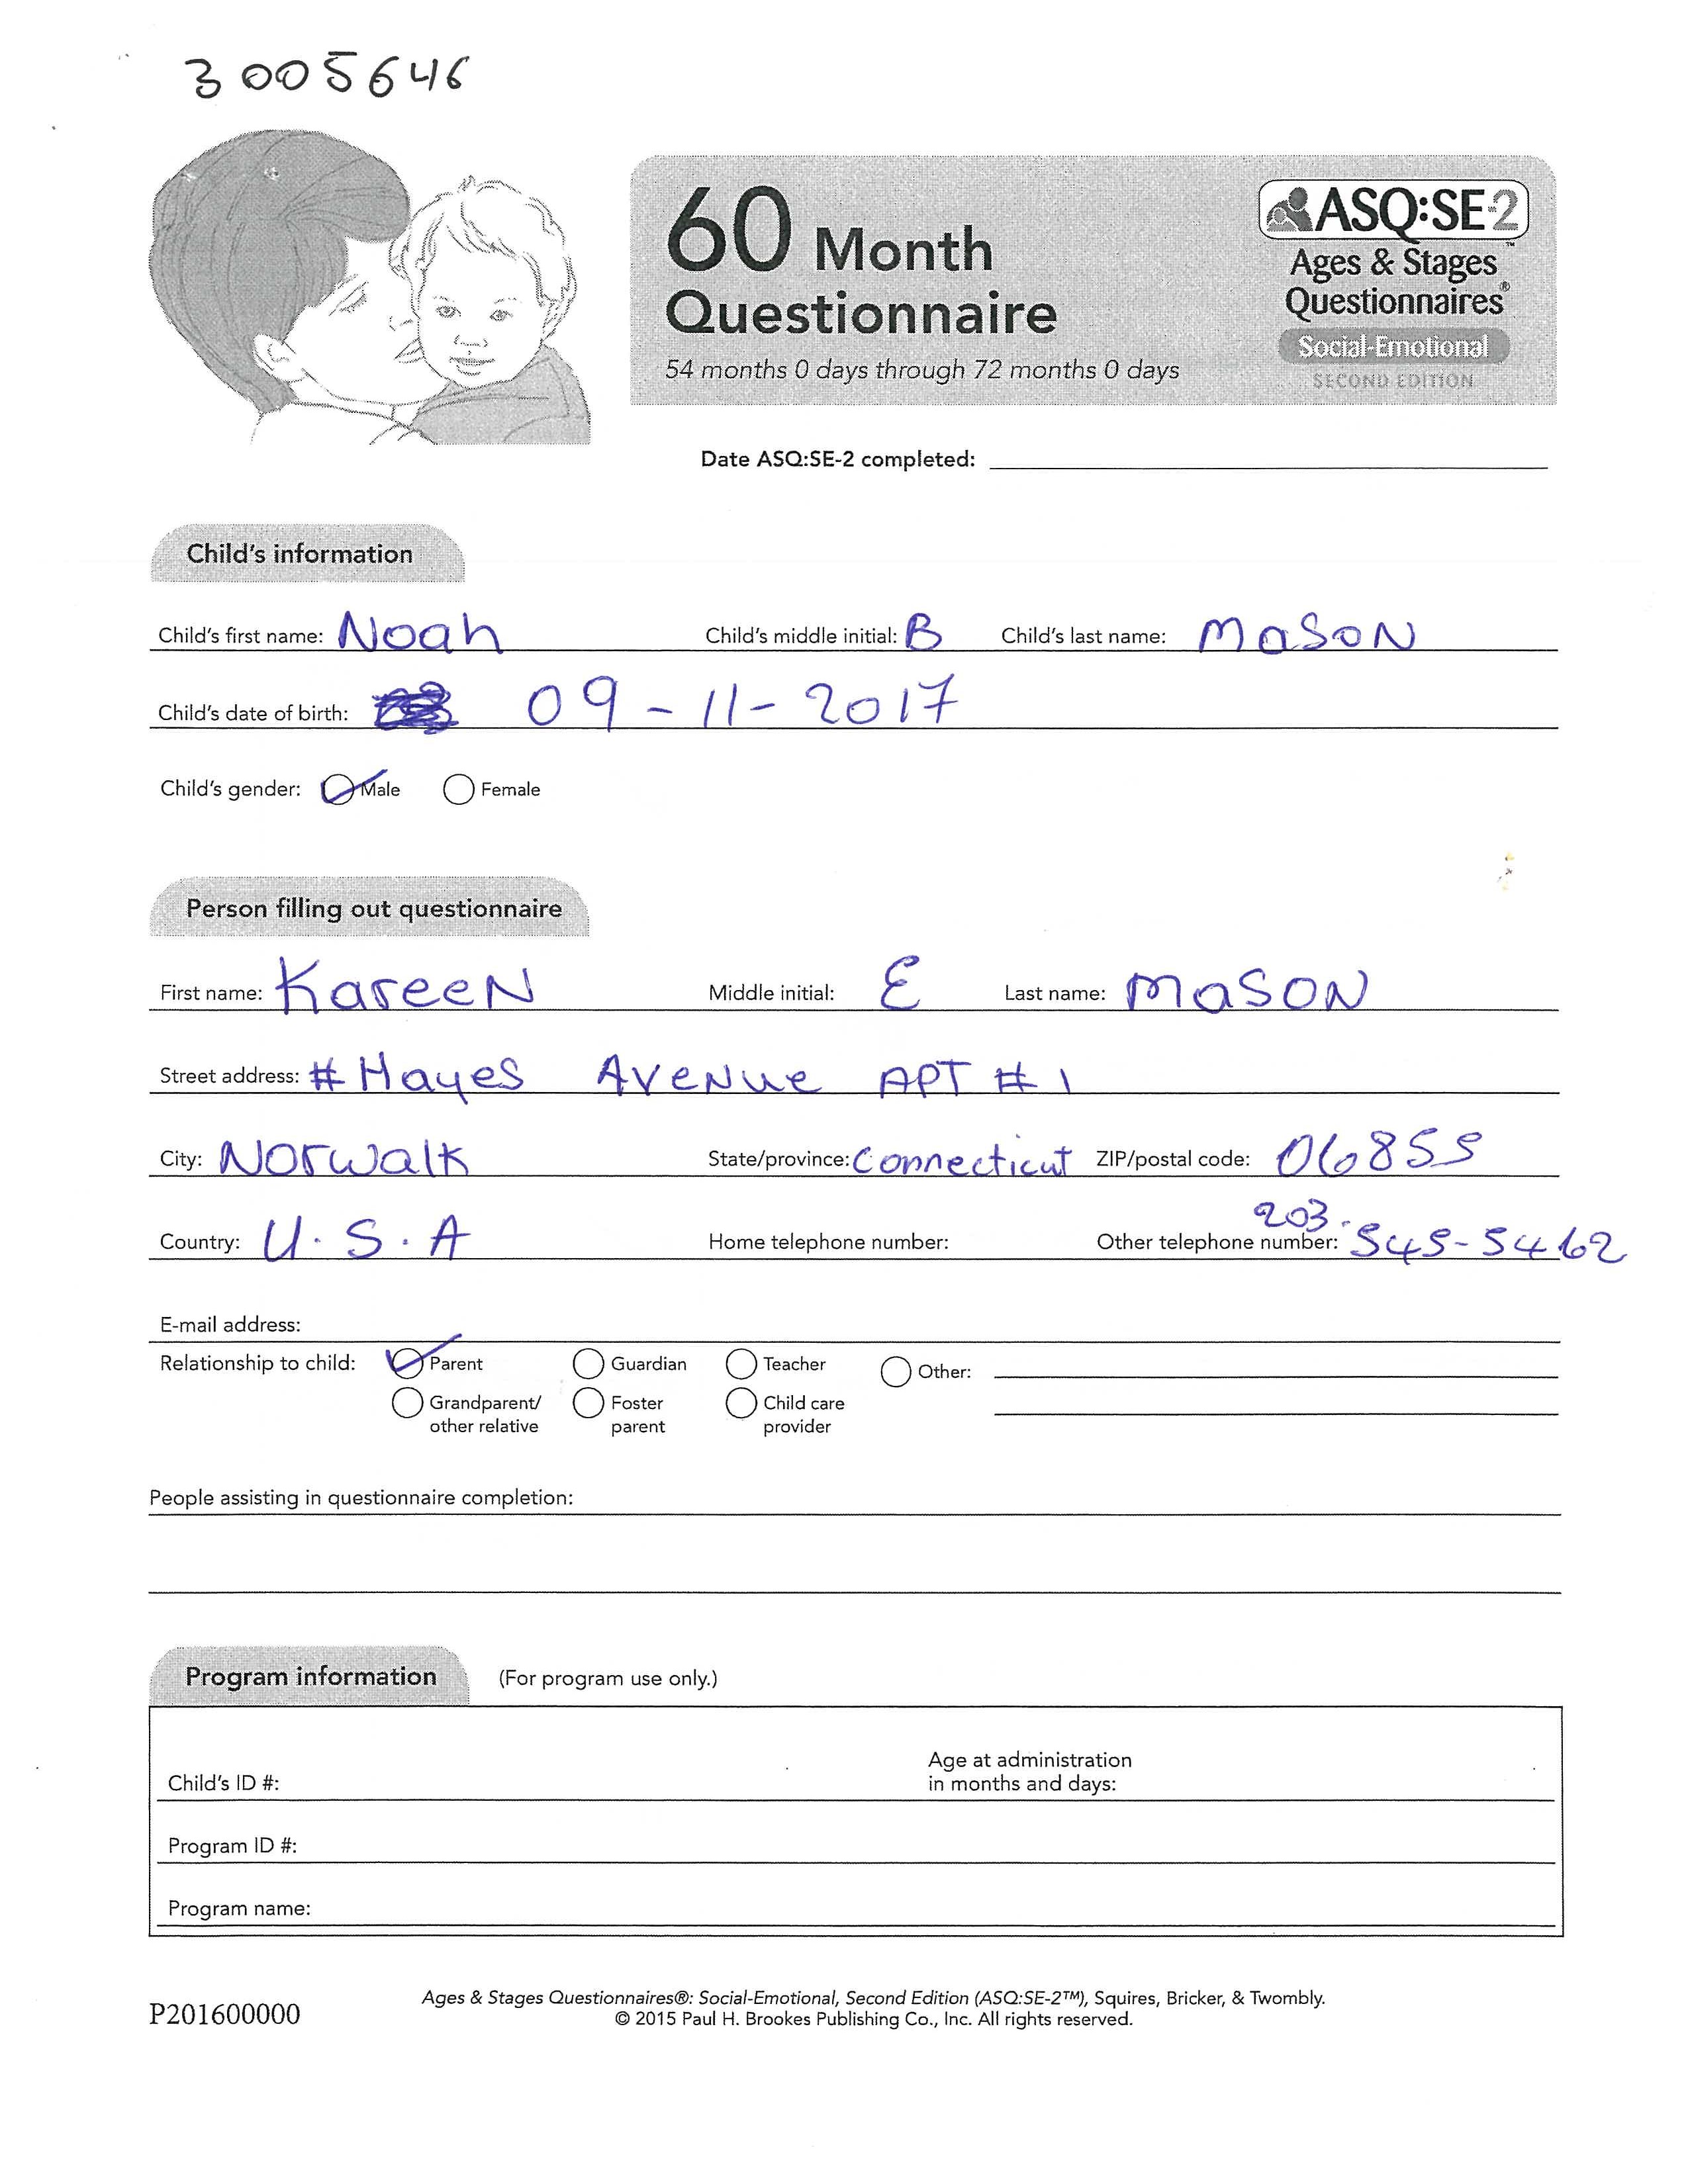 3005646
60 Month
Questionnaire
54 months 0 days through 72 months 0 days
ASQ:SE-2™
Ages & Stages
Questionnaires®
Social-Emotional
SECOND EDITION
Date ASQ:SE-2 completed:
Child's information
Child's first name: Noah Child's middle initial: B Child's last name: MaSoN
Child's date of birth: 09-11-2017
Child's gender: Male Female
Person filling out questionnaire
First name: KareeN Middle initial: E Last name: MaSON
Street address: # Hayes AveNue APT # 1
City: NOrwalk State/province: Connecticut ZIP/postal code: 06855
Country: U.S.A Home telephone number: Other telephone number: 203-545-5462
E-mail address:
Relationship to child: Parent Guardian Teacher Other:
Grandparent/other relative Foster parent Child care provider
People assisting in questionnaire completion:
Program information (For program use only.)
Child's ID #: Age at administration in months and days:
Program ID #:
Program name:
P201600000
Ages & Stages Questionnaires®: Social-Emotional, Second Edition (ASQ:SE-2™), Squires, Bricker, & Twombly.
© 2015 Paul H. Brookes Publishing Co., Inc. All rights reserved.